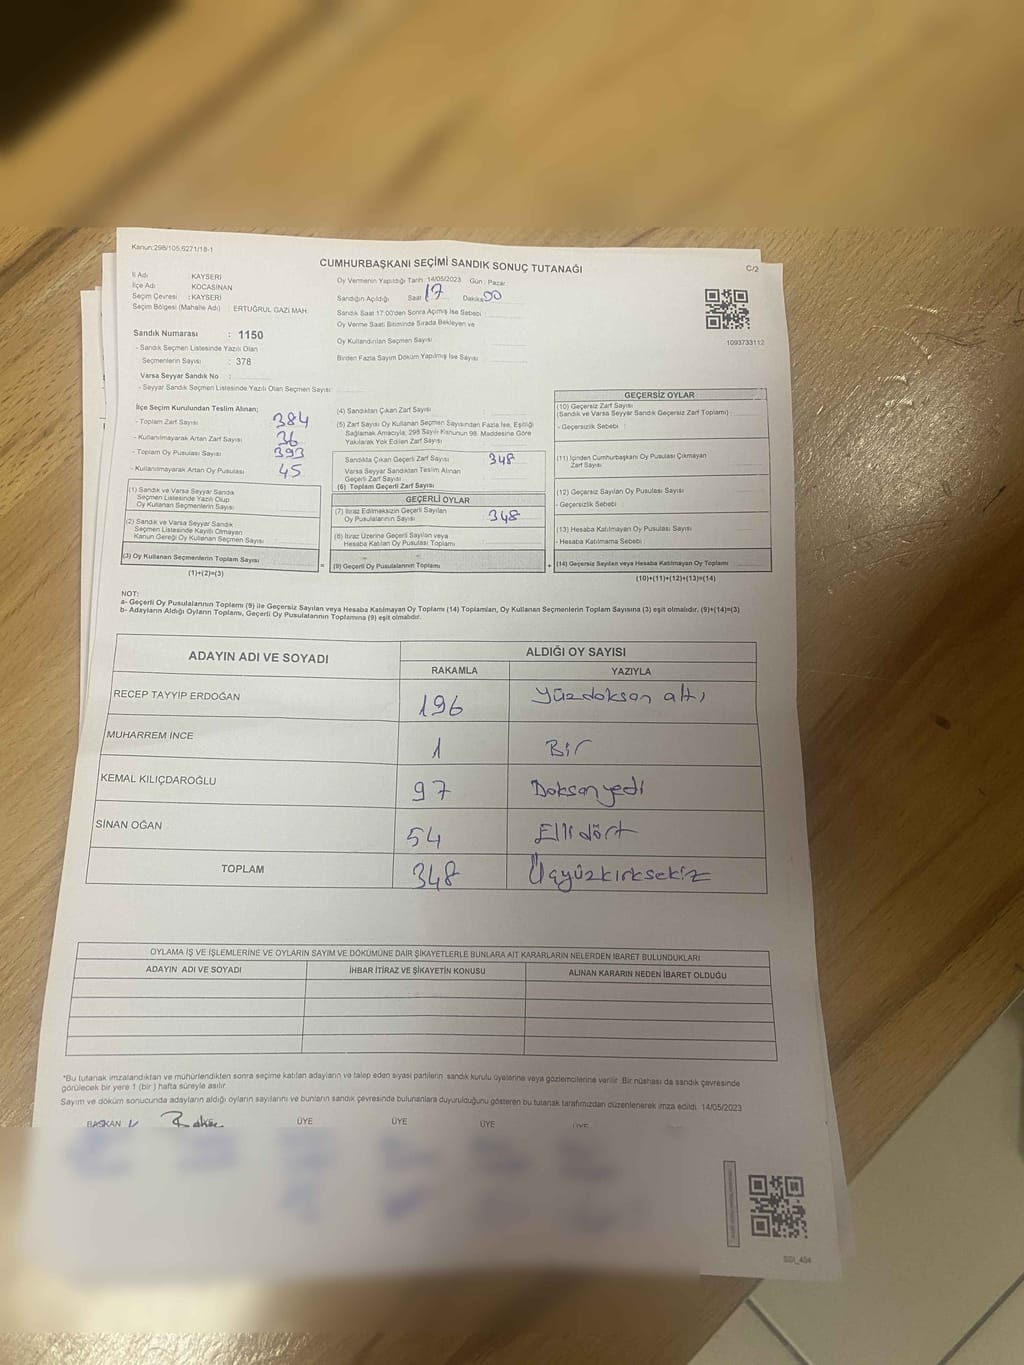 Kanun:298/105,6271/18-1
CUMHURBAŞKANI SEÇİMİ SANDIK SONUÇ TUTANAĞI
C/2
İl Adı : KAYSERİ
İlçe Adı : KOCASİNAN
Seçim Çevresi : KAYSERİ
Seçim Bölgesi (Mahalle Adı) : ERTUĞRUL GAZİ MAH.
Sandık Numarası : 1150
- Sandık Seçmen Listesinde Yazılı Olan
Seçmenlerin Sayısı : 378
Varsa Seyyar Sandık No :
- Seyyar Sandık Seçmen Listesinde Yazılı Olan Seçmen Sayısı:
Oy Vermenin Yapıldığı Tarih : 14/05/2023 Gün : Pazar
Sandığın Açıldığı Saat 17 Dakika 00
Sandık Saat 17:00'den Sonra Açılmış İse Sebebi :
Oy Verme Saati Bitiminde Sırada Bekleyen ve
Oy Kullandırılan Seçmen Sayısı
Birden Fazla Sayım Döküm Yapılmış İse Sayısı
1093733112
İlçe Seçim Kurulundan Teslim Alınan;
- Toplam Zarf Sayısı 384
- Kullanılmayarak Artan Zarf Sayısı 36
- Toplam Oy Pusulası Sayısı 393
- Kullanılmayarak Artan Oy Pusulası 45
(1) Sandık ve Varsa Seyyar Sandık
Seçmen Listesinde Yazılı Olup
Oy Kullanan Seçmenlerin Sayısı
(2) Sandık ve Varsa Seyyar Sandık
Seçmen Listesinde Kayıtlı Olmayan
Kanun Gereği Oy Kullanan Seçmen Sayısı
(3) Oy Kullanan Seçmenlerin Toplam Sayısı
(1)+(2)=(3)
(4) Sandıktan Çıkan Zarf Sayısı
(5) Zarf Sayısı Oy Kullanan Seçmen Sayısından Fazla İse, Eşitliği
Sağlamak Amacıyla; 298 Sayılı Kanunun 98. Maddesine Göre
Yakılarak Yok Edilen Zarf Sayısı
Sandıkta Çıkan Geçerli Zarf Sayısı 348
Varsa Seyyar Sandıktan Teslim Alınan
Geçerli Zarf Sayısı
(6) Toplam Geçerli Zarf Sayısı
GEÇERLİ OYLAR
(7) İtiraz Edilmeksizin Geçerli Sayılan
Oy Pusulalarının Sayısı 348
(8) İtiraz Üzerine Geçerli Sayılan veya
Hesaba Katılan Oy Pusulası Toplamı
(9) Geçerli Oy Pusulalarının Toplamı
GEÇERSİZ OYLAR
(10) Geçersiz Zarf Sayısı
(Sandık ve Varsa Seyyar Sandık Geçersiz Zarf Toplamı)
- Geçersizlik Sebebi :
(11) İçinden Cumhurbaşkanı Oy Pusulası Çıkmayan
Zarf Sayısı
(12) Geçersiz Sayılan Oy Pusulası Sayısı
- Geçersizlik Sebebi :
(13) Hesaba Katılmayan Oy Pusulası Sayısı
- Hesaba Katılmama Sebebi :
(14) Geçersiz Sayılan veya Hesaba Katılmayan Oy Toplamı
(10)+(11)+(12)+(13)=(14)
NOT:
a- Geçerli Oy Pusulalarının Toplamı (9) ile Geçersiz Sayılan veya Hesaba Katılmayan Oy Toplamı (14) Toplamları, Oy Kullanan Seçmenlerin Toplam Sayısına (3) eşit olmalıdır. (9)+(14)=(3)
b- Adayların Aldığı Oyların Toplamı, Geçerli Oy Pusulalarının Toplamına (9) eşit olmalıdır.
ADAYIN ADI VE SOYADI ALDIĞI OY SAYISI
RAKAMLA YAZIYLA
RECEP TAYYİP ERDOĞAN 196 Yüzdoksan altı
MUHARREM İNCE 1 Bir
KEMAL KILIÇDAROĞLU 97 Doksanyedi
SİNAN OĞAN 54 Ellidört
TOPLAM 348 Üçyüzkırksekiz
OYLAMA İŞ VE İŞLEMLERİNE VE OYLARIN SAYIM VE DÖKÜMÜNE DAİR ŞİKAYETLERLE BUNLARA AİT KARARLARIN NELERDEN İBARET BULUNDUKLARI
ADAYIN ADI VE SOYADI İHBAR İTİRAZ VE ŞİKAYETİN KONUSU ALINAN KARARIN NEDEN İBARET OLDUĞU
*Bu tutanak imzalandıktan ve mühürlendikten sonra seçime katılan adayların ve talep eden siyasi partilerin sandık kurulu üyelerine veya gözlemcilerine verilir. Bir nüshası da sandık çevresinde
görülecek bir yere 1 (bir ) hafta süreyle asılır.
Sayım ve döküm sonucunda adayların aldığı oyların sayılarını ve bunların sandık çevresinde bulunanlara duyurulduğunu gösteren bu tutanak tarafımızdan düzenlenerek imza edildi. 14/05/2023
BAŞKAN ÜYE ÜYE ÜYE ÜYE